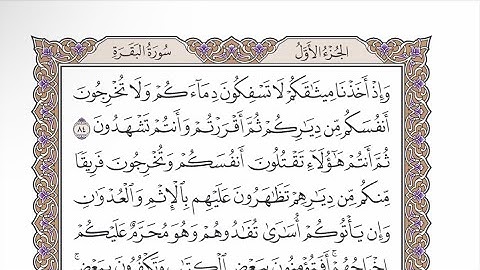 الجُزْءُ الأَوَّلُ
سُورَةُ البَقَرَةِ
وَإِذْ أَخَذْنَا مِيثَٰقَكُمْ لَا تَسْفِكُونَ دِمَآءَكُمْ وَلَا تُخْرِجُونَ
أَنفُسَكُم مِّن دِيَٰرِكُمْ ثُمَّ أَقْرَرْتُمْ وَأَنتُمْ تَشْهَدُونَ ٨٤
ثُمَّ أَنتُمْ هَٰٓؤُلَآءِ تَقْتُلُونَ أَنفُسَكُمْ وَتُخْرِجُونَ فَرِيقًا
مِّنكُم مِّن دِيَٰرِهِمْ تَظَٰهَرُونَ عَلَيْهِم بِٱلْإِثْمِ وَٱلْعُدْوَٰنِ
وَإِن يَأْتُوكُمْ أُسَٰرَىٰ تُفَٰدُوهُمْ وَهُوَ مُحَرَّمٌ عَلَيْكُمْ
إِخْرَاجُهُمْ ۚ أَفَتُؤْمِنُونَ بِبَعْضِ ٱلْكِتَٰبِ وَتَكْفُرُونَ بِبَعْضٍ ۚ